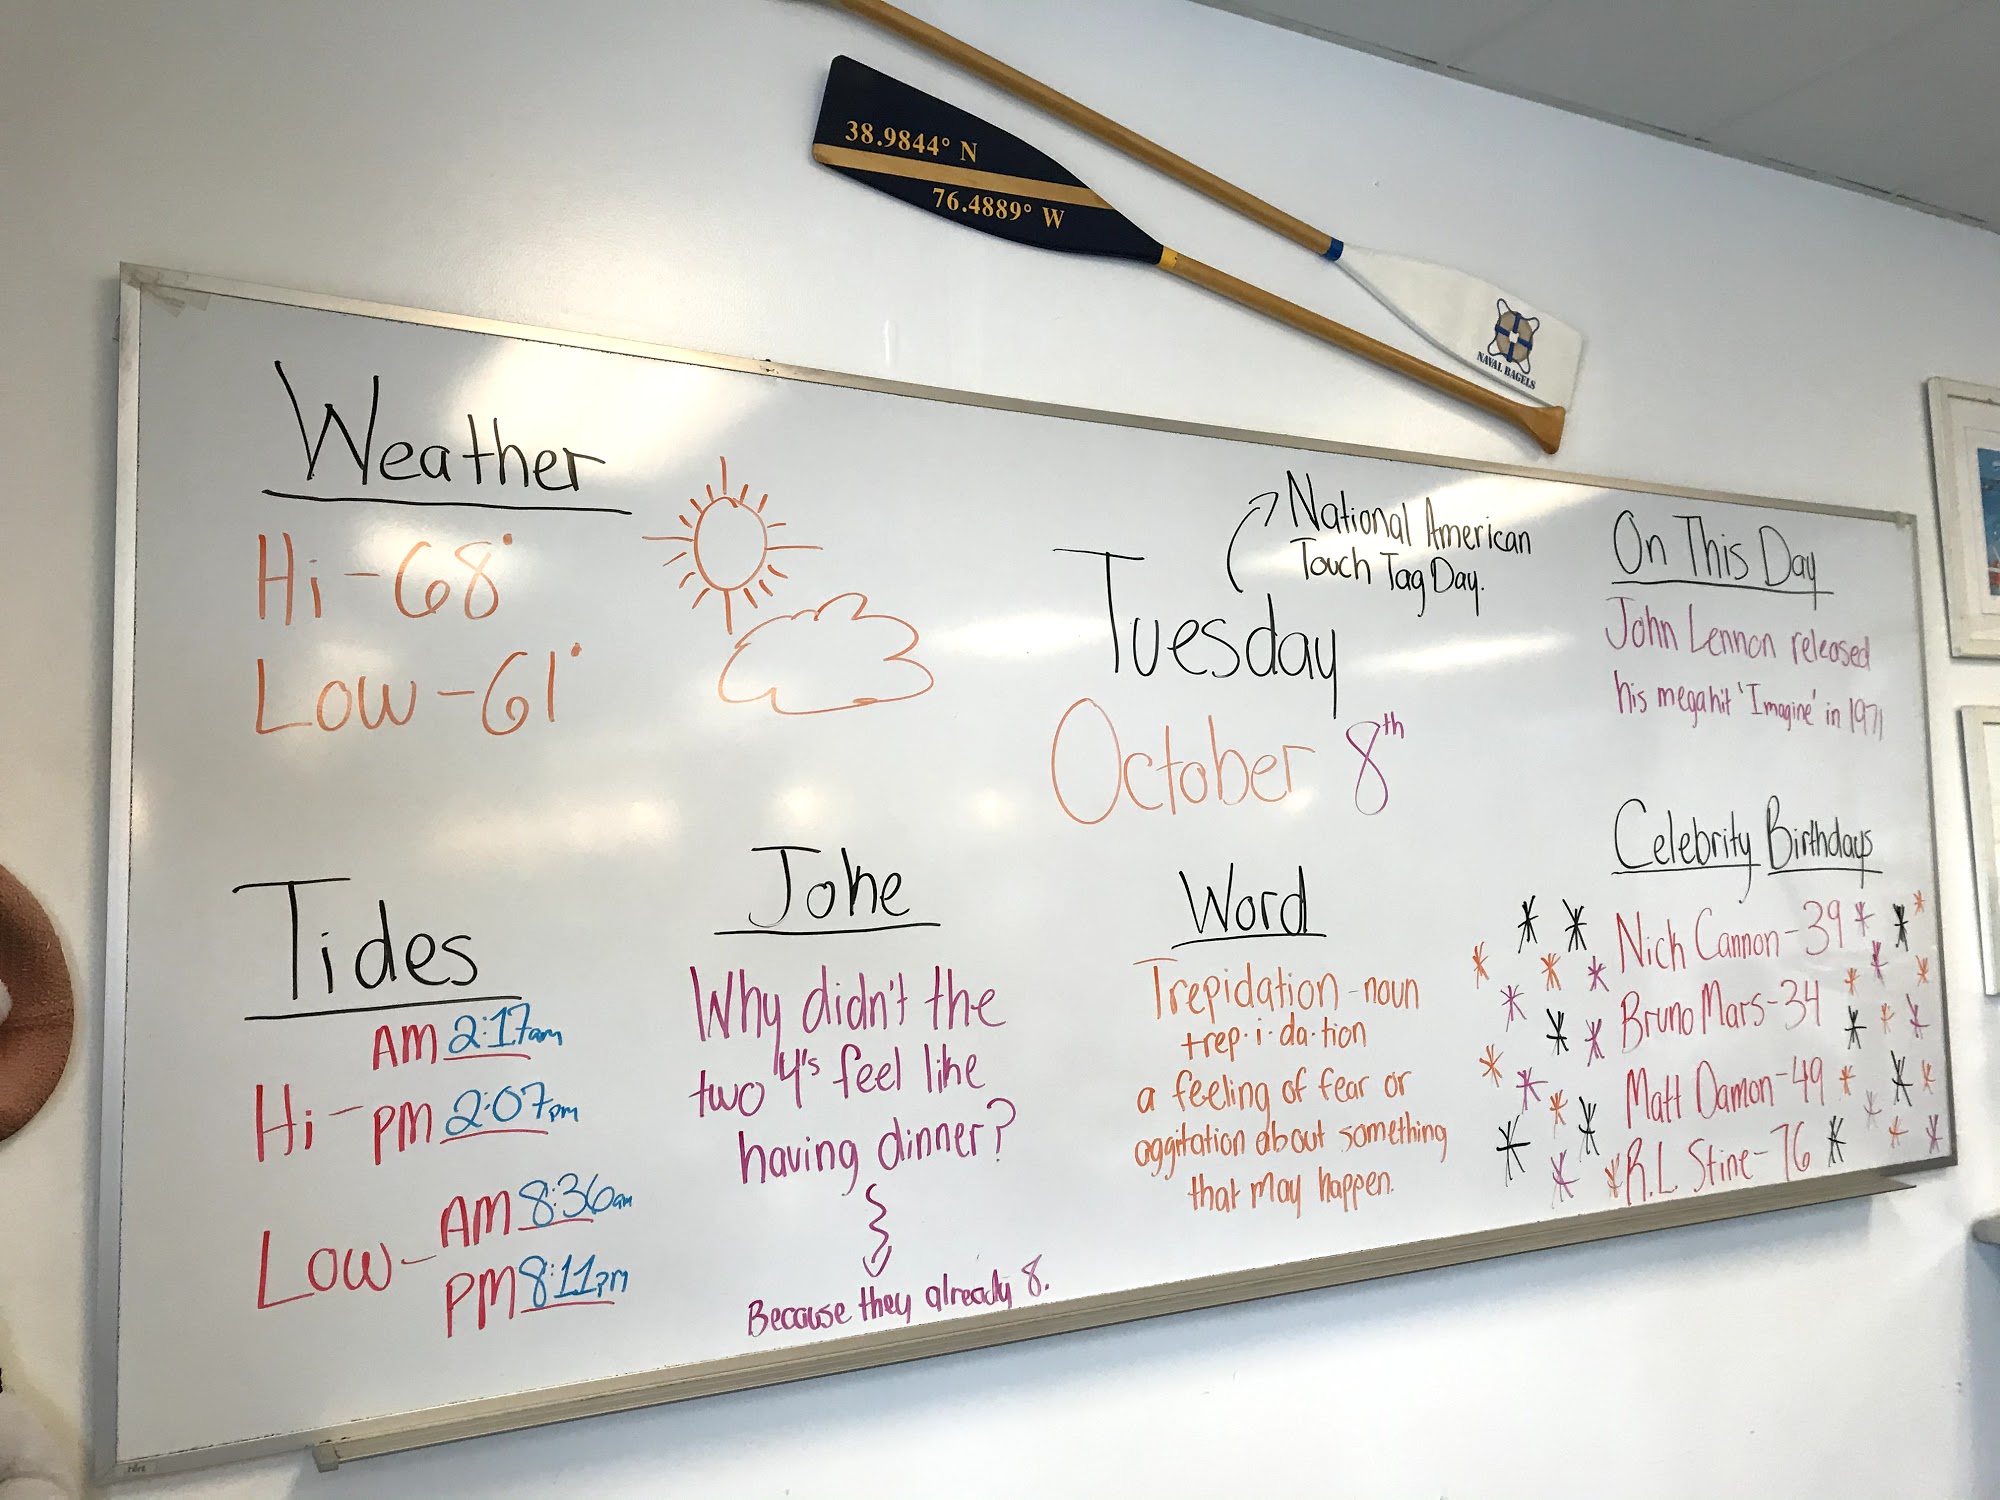 38.9844° N
76.4889° W
NAVAL BAGELS
Weather
Hi - 68°
Low - 61°
National American
Touch Tag Day.
Tuesday
October 8th
On This Day
John Lennon released
his megahit 'Imagine' in 1971
Tides
AM 2:17am
Hi - PM 2:07pm
Low - AM 8:36am
PM 8:11pm
Joke
Why didn't the
two 4's feel like
having dinner?
Because they already 8.
Word
Trepidation - noun
trep·i·da·tion
a feeling of fear or
aggitation about something
that may happen.
Celebrity Birthdays
Nick Cannon - 39
Bruno Mars - 34
Matt Damon - 49
R.L. Stine - 76